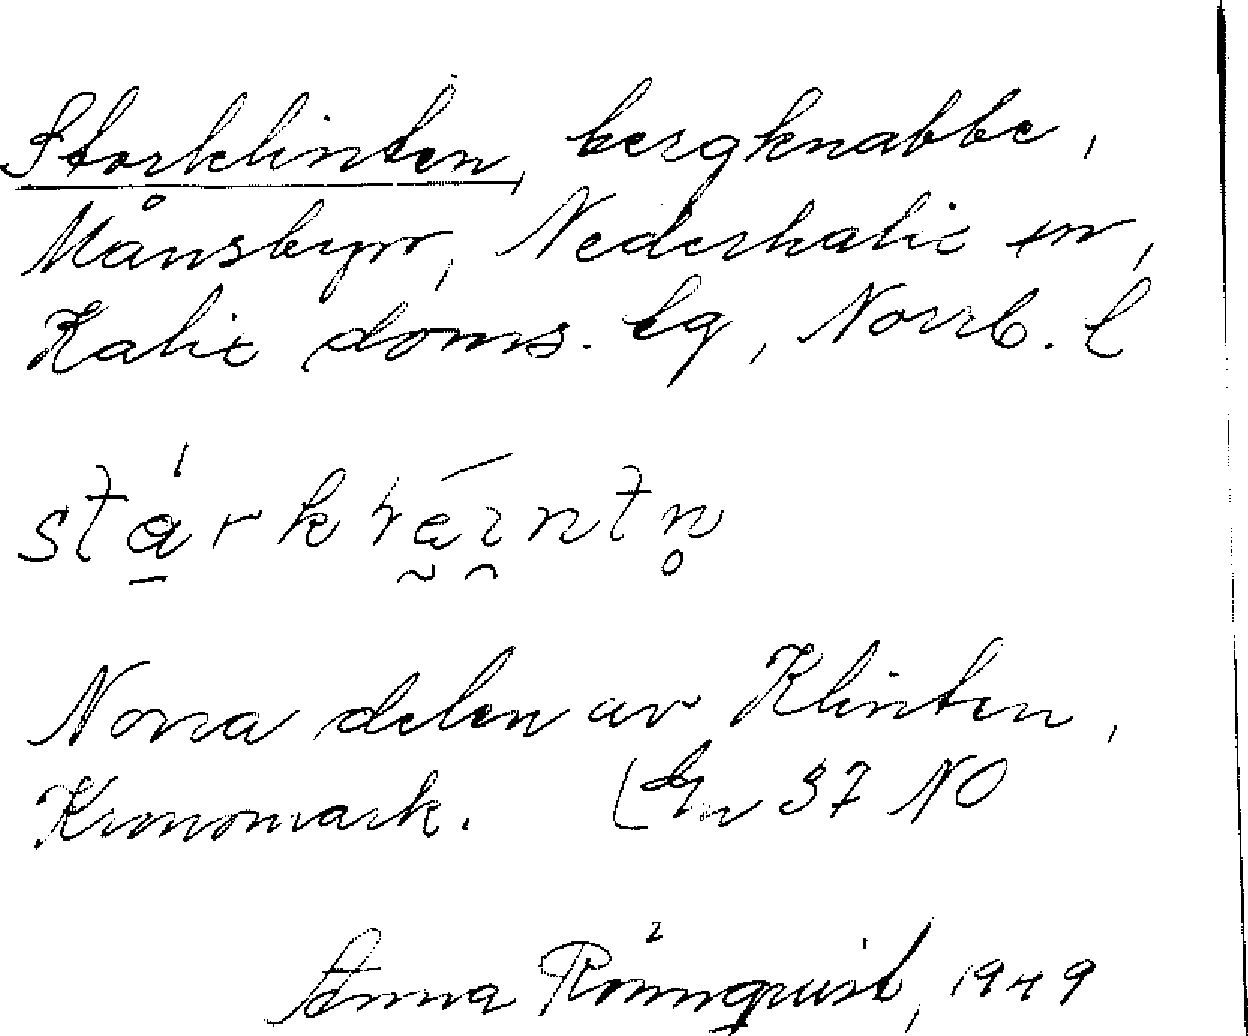 Storklinten, bergknabbe,
Månsbyn, Nederkalix sn,
Kalix doms. lg, Norrb. l
Norra delen av Klinten,
Kronomark.
37 NO
Anna Rönnquist, 1949